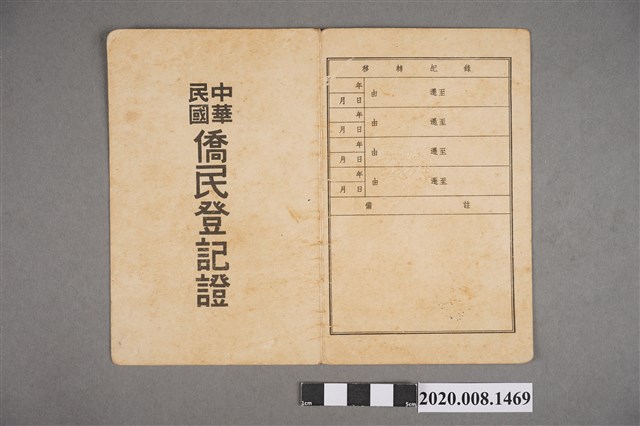 中華
民國
僑民登記證
移轉紀錄
年
月日
由 遷至
年
月日
由 遷至
年
月日
由 遷至
年
月日
由 遷至
備註
1cm 5cm
2020.008.1469